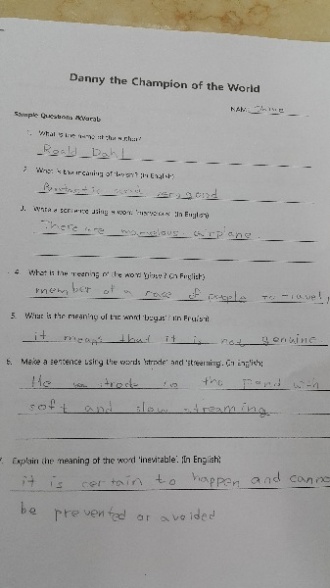 Danny the Champion of the World
NAME
Sample Questions &Vocab
1. What is the name of the author?
Roald Dahl
2. What is the meaning of (In English)
very good
3. Write a sentence using a word 'marvelous' (In English)
There are marvelous airplane.
4. What is the meaning of the word (In English)
member of a race of people to travel,
5. What is the meaning of the word 'bogus' (In English)
it means that it is not genuine
6. Make a sentence using the words 'strode' and 'streaming'. (In English)
He strode to the Pond with
soft and slow streaming
7. Explain the meaning of the word 'inevitable'. (In English)
it is certain to happen and canno
be prevented or avoided